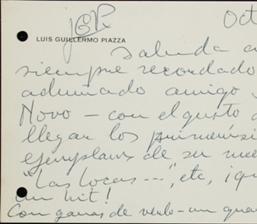 Oct
LUIS GUILLERMO PIAZZA
Saluda a
siempre recordado
admirado amigo
Novo - con el gusto d
llegar los primerísi
ejemplares de su nue
"Las locas...", etc, ¡qu
un hit!
Con ganas de verlo - un gran